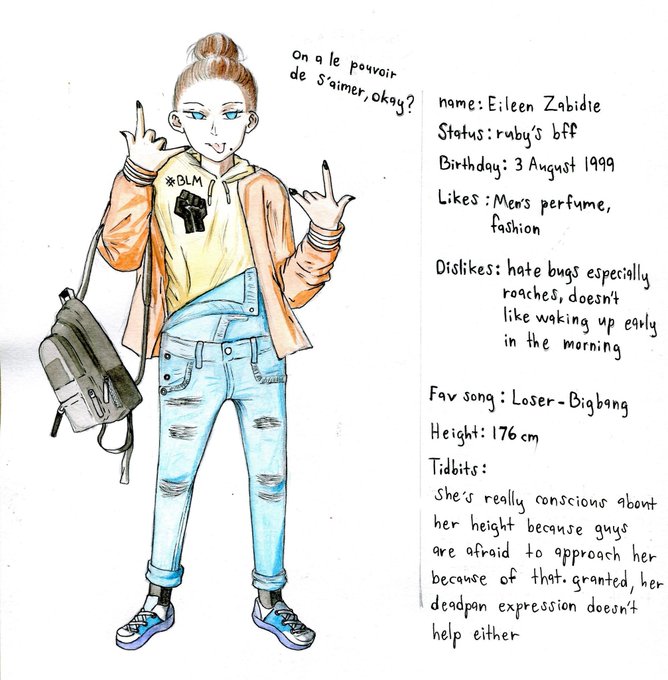 On a le pouvoir
de s'aimer, okay?
#BLM
name: Eileen Zabidie
Status: ruby's bff
Birthday: 3 August 1999
Likes: Men's perfume,
fashion
Dislikes: hate bugs especially
roaches, doesn't
like waking up early
in the morning
Fav song: Loser-Bigbang
Height: 176 cm
Tidbits:
she's really conscious about
her height because guys
are afraid to approach her
because of that. granted, her
deadpan expression doesn't
help either